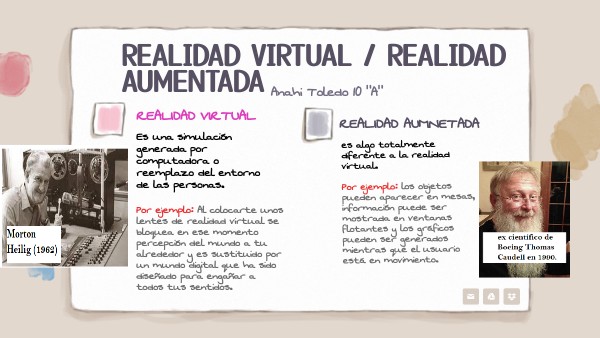 REALIDAD VIRTUAL / REALIDAD
AUMENTADA Anahi Toledo 10 "A"
REALIDAD VIRTUAL
Es una simulación
generada por
computadora o
reemplazo del entorno
de las personas.
Por ejemplo: Al colocarte unos
lentes de realidad virtual se
bloquea en ese momento
percepción del mundo a tu
alrededor y es sustituido por
un mundo digital que ha sido
diseñado para engañar a
todos tus sentidos.
Morton
Heilig (1962)
REALIDAD AUMNETADA
es algo totalmente
diferente a la realidad
virtual.
Por ejemplo: los objetos
pueden aparecer en mesas,
información puede ser
mostrada en ventanas
flotantes y los gráficos
pueden ser generados
mientras que el usuario
está en movimiento.
ex científico de
Boeing Thomas
Caudell en 1990.